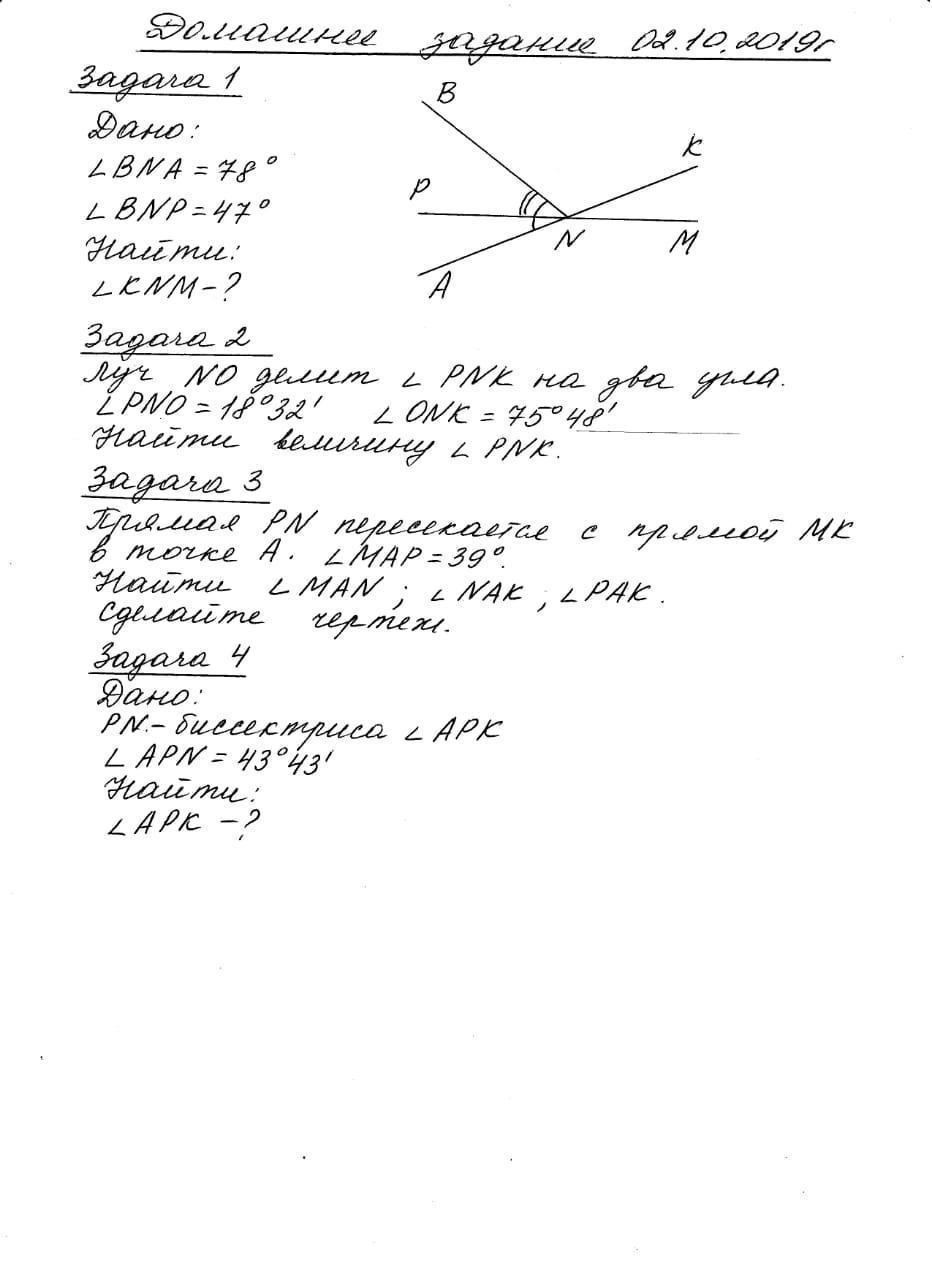 Домашнее задание 02.10.2019г
Задача 1
Дано:
∠BNA = 78°
∠BNP = 47°
Найти:
∠KNM - ?
B
K
P
N
M
A
Задача 2
Луч NO делит ∠ PNK на два угла.
∠PNO = 18°32' ∠ONK = 75°48'
Найти величину ∠ PNK.
Задача 3
Прямая PN пересекается с прямой MK
в точке A. ∠MAP = 39°.
Найти ∠MAN ; ∠NAK ; ∠PAK.
Сделайте чертеж.
Задача 4
Дано:
PN - биссектриса ∠APK
∠APN = 43°43'
Найти:
∠APK - ?